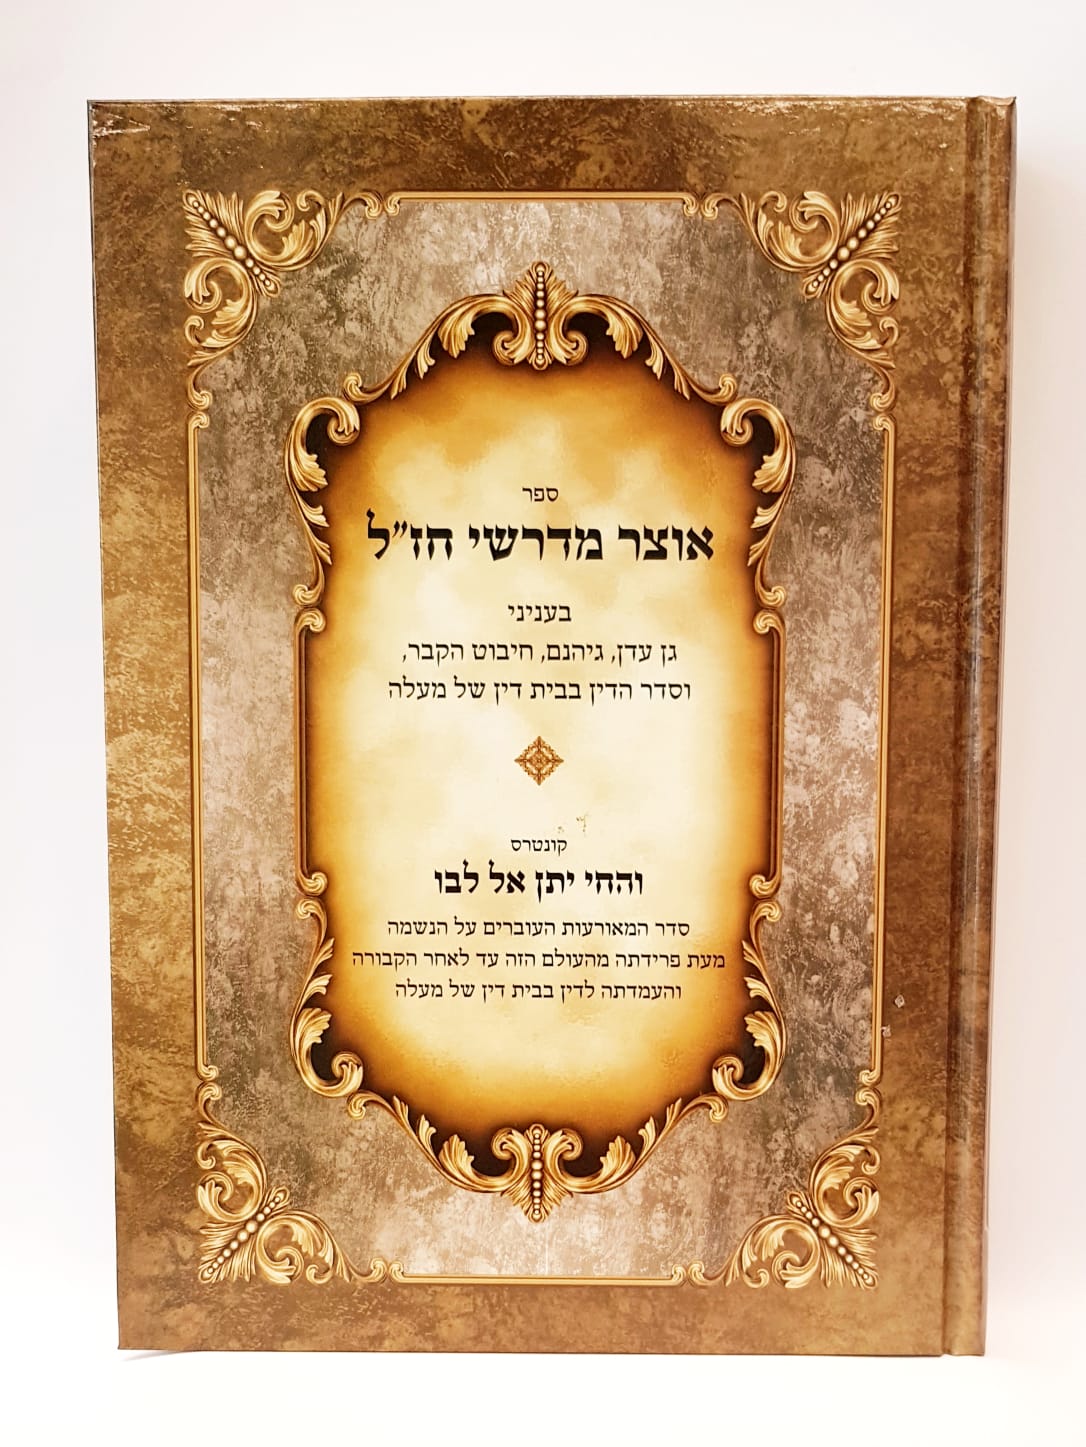 ספר
אוצר מדרשי חז"ל
בעניני
גן עדן, גיהנם, חיבוט הקבר,
וסדר הדין בבית דין של מעלה
קונטרס
והחי יתן אל לבו
סדר המאורעות העוברים על הנשמה
מעת פרידתה מהעולם הזה עד לאחר הקבורה
והעמדתה לדין בבית דין של מעלה